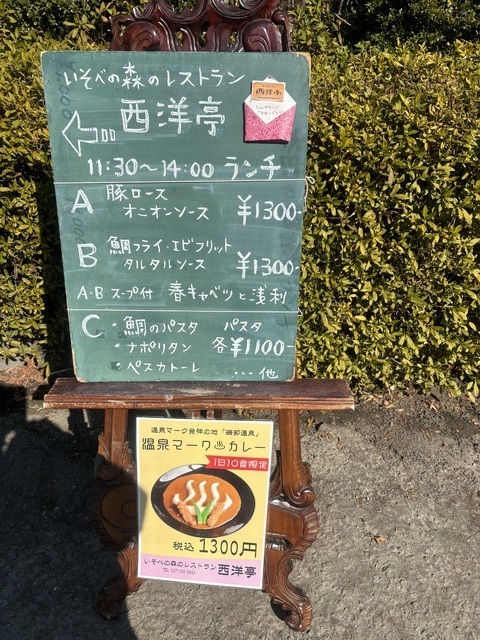 いそべの森のレストラン
西洋亭
西洋亭
11:30〜14:00 ランチ
A 豚ロース
オニオンソース ¥1300-
B 鯛フライ・エビフリット
タルタルソース ¥1300-
A・B スープ付 春キャベツと浅利
C ・鯛のパスタ パスタ
・ナポリタン 各¥1100-
・ペスカトーレ …他
温泉マーク発祥の地「磯部温泉」
温泉マーク♨カレー
1日10食限定
税込 1300円
いそべの森のレストラン 西洋亭